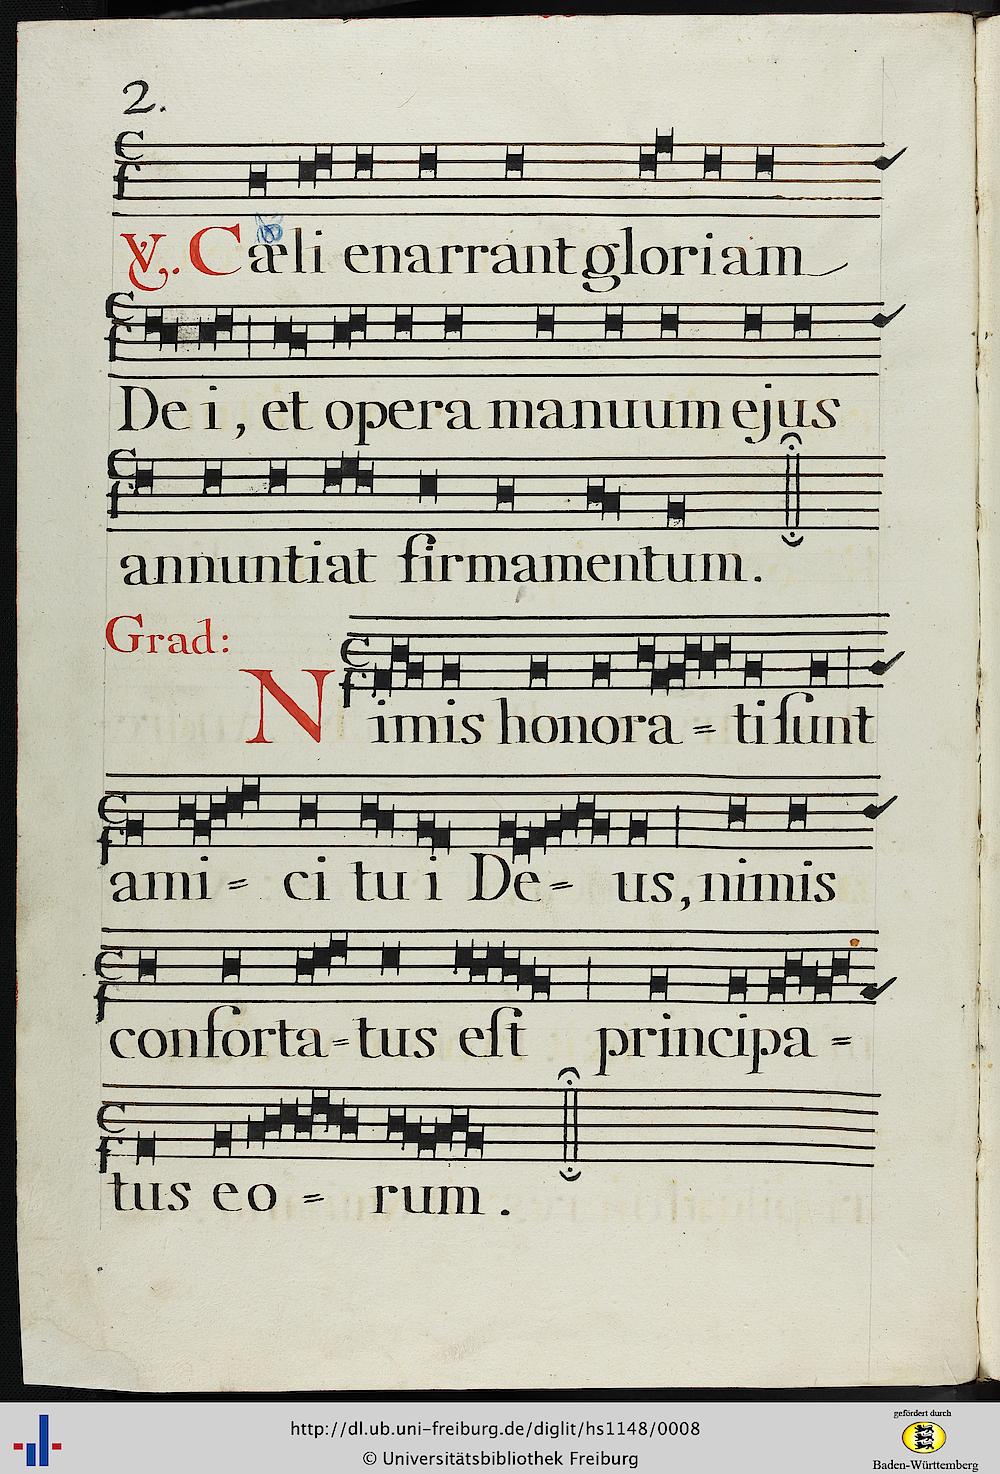 2.
℣. Cæli enarrant gloriam
Dei, et opera manuum ejus
annuntiat firmamentum.
Grad:
Nimis honora = ti ſunt
ami = ci tui De = us, nimis
conforta = tus eſt principa =
tus eo = rum.
http://dl.ub.uni-freiburg.de/diglit/hs1148/0008
© Universitätsbibliothek Freiburg
gefördert durch
Baden-Württemberg